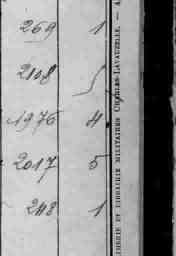 269 1
2108
1976 4
2017 5
248 1
IMERIE ET LIBRAIRIE MILITAIRES CHARLES-LAVAUZELLE. — A